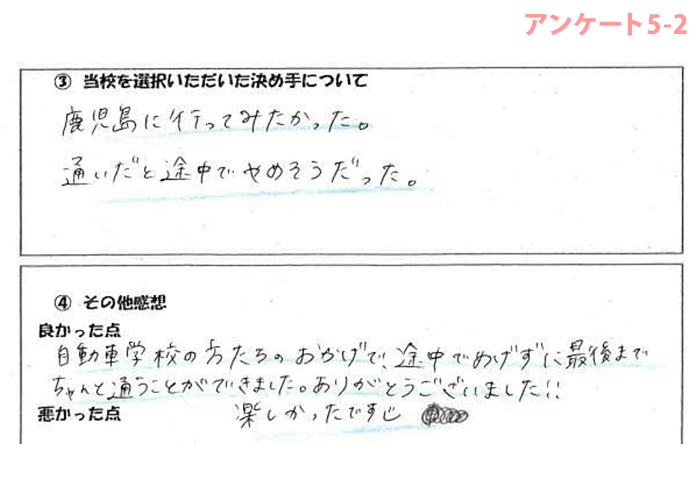 アンケート5-2
③ 当校を選択いただいた決め手について
鹿児島に行ってみたかった。
通いだと途中でやめそうだった。
④ その他感想
良かった点
自動車学校の方たちのおかげで、途中でめげずに最後まで
ちゃんと通うことができました。ありがとうございました!!
楽しかったです
悪かった点